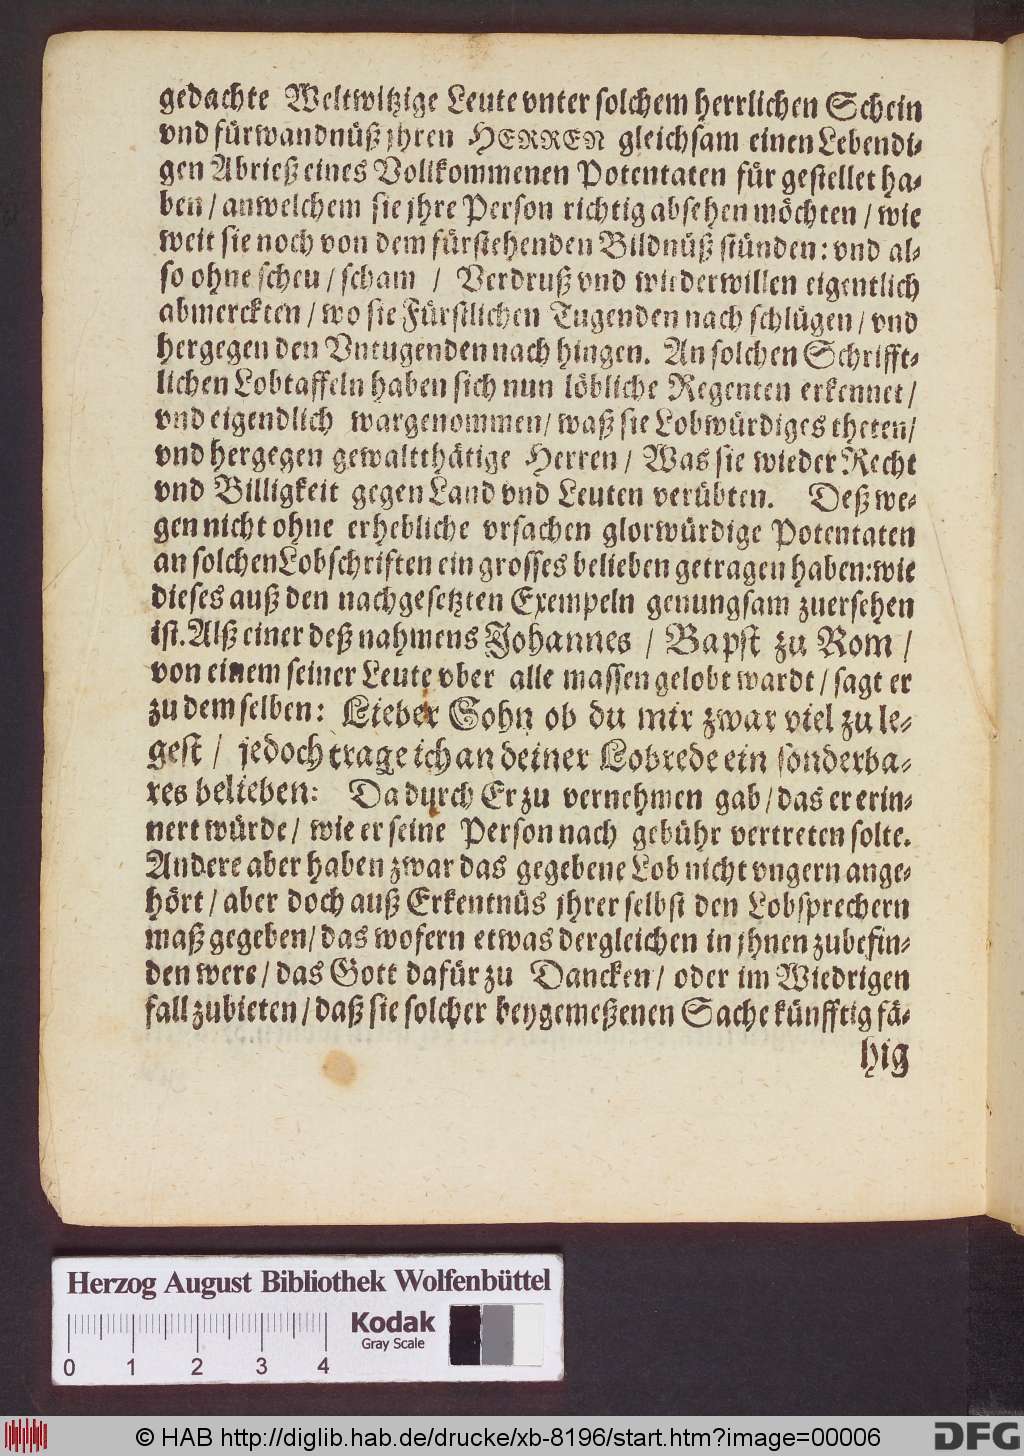 gedachte Weltwitzige Leute vnter solchem herrlichen Schein
vnd fürwandnüß jhren HERREN gleichsam einen Lebendi-
gen Abrieß eines Vollkommenen Potentaten für gestellet ha-
ben / anwelchem sie jhre Person richtig absehen möchten / wie
weit sie noch von dem fürstehenden Bildnüß stünden: vnd al-
so ohne scheu / scham / Verdruß vnd wiederwillen eigentlich
abmerckten / wo sie Fürstlichen Tugenden nach schlügen / vnd
hergegen den Vntugenden nach hingen. An solchen Schrifft-
lichen Lobtaffeln haben sich nun löbliche Regenten erkennet /
vnd eigendlich wargenommen / waß sie Lobwürdiges theten /
vnd hergegen gewaltthätige Herren / Was sie wieder Recht
vnd Billigkeit gegen Land vnd Leuten verübten. Deß we-
gen nicht ohne erhebliche vrsachen glorwürdige Potentaten
an solchen Lobschriften ein grosses belieben getragen haben: wie
dieses auß den nachgesetzten Exempeln genungsam zuersehen
ist. Alß einer deß nahmens Johannes / Bapst zu Rom /
von einem seiner Leute vber alle massen gelobt wardt / sagt er
zu dem selben: Lieber Sohn ob du mir zwar viel zu le-
gest / jedoch trage ich an deiner Lobrede ein sonderba-
res belieben: Da durch Er zu vernehmen gab / das er erin-
nert würde / wie er seine Person nach gebühr vertreten solte.
Andere aber haben zwar das gegebene Lob nicht vngern ange-
hört / aber doch auß Erkentnüs jhrer selbst den Lobsprechern
maß gegeben / das wofern etwas dergleichen in jhnen zubefin-
den were / das Gott dafür zu Dancken / oder im Wiedrigen
fall zubieten / daß sie solcher beygemeßenen Sache künfftig fä-
hig
Herzog August Bibliothek Wolfenbüttel
Kodak
Gray Scale
0 1 2 3 4
© HAB http://diglib.hab.de/drucke/xb-8196/start.htm?image=00006
DFG